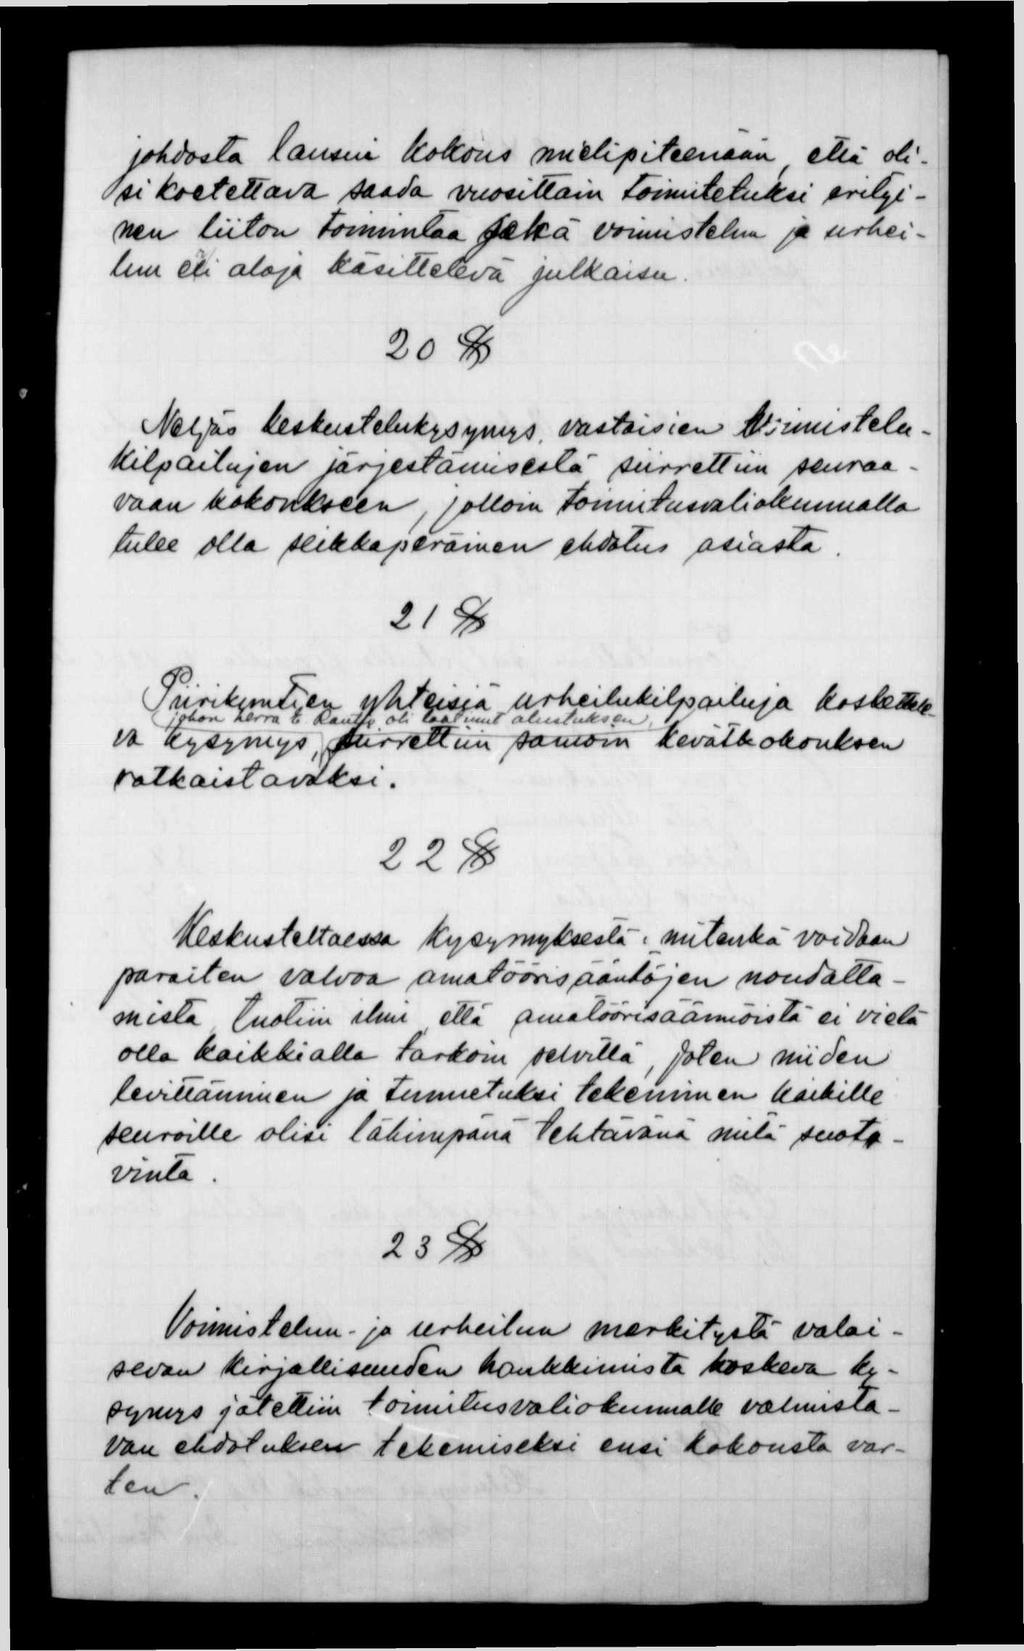 johdosta lausui kokous mielipiteenään, että oli-
si koetettava saada vuosittain toimitetuksi erityi-
nen liiton toimintaa sekä voimistelun ja urhei-
lun eri aloja käsittelevä julkaisu.
20 §
Neljäs keskustelukysymys, vastaisien voimistelu-
kilpailujen järjestämisestä siirrettiin seuraa-
vaan kokoukseen, jolloin toimitusvaliokunnalla
tulee olla seikkaperäinen ehdotus asiasta.
21 §
Piirikuntien yhteisiä urheilukilpailuja koskettele-
johon herra E oli laatinut alustuksen,
va kysymys, siirrettiin samoin kevätkokouksen
ratkaistavaksi.
22 §
Keskusteltaessa kysymyksestä: mitenkä voidaan
paraiten valvoa amatöörisääntöjen noudatta-
mista, tuotiin ilmi että amatöörisäännöistä ei vielä
olla kaikkialla tarkoin selvillä, joten niiden
levittäminen ja tunnetuksi tekeminen kaikille
seuroille olisi lähimpänä tehtävänä mitä suota-
vinta.
23 §
Voimistelun- ja urheilun merkitystä valai-
sevan kirjallisuuden hankkimista koskeva ky-
symys jätettiin toimitusvaliokunnalle valmista-
van ehdotuksen tekemiseksi ensi kokousta var-
ten.